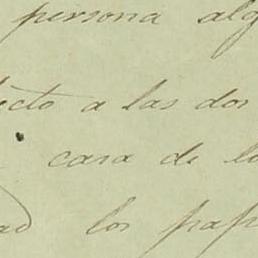 persona alg
ecto a las dos
casa de lo
ad los pap